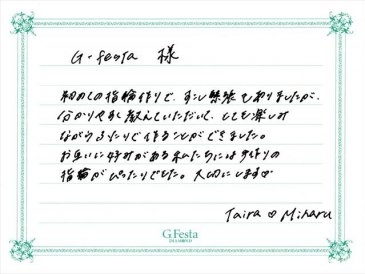 G-festa 様
初めての指輪作りで、少し緊張もありましたが、
分かりやすく教えていただいて、とても楽しみ
ながらふたりで作ることができました。
お互いに好みがある私たちには手作りの
指輪がぴったりでした。大切にします♡
Taira ♡ Miharu
G.Festa
DIAMOND